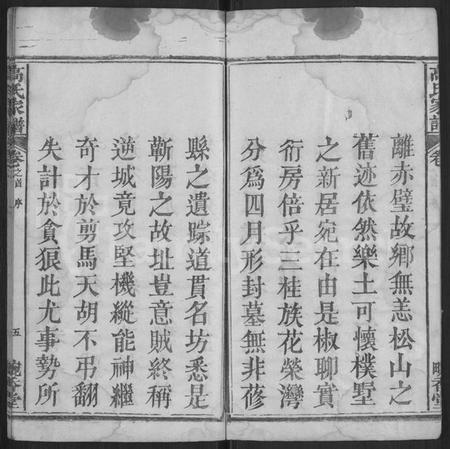 高氏家譜
卷
離赤璧故鄉無恙松山之
舊迹依然樂土可懷樸墅
之新居宛在由是椒聊實
衍房倍乎三桂族花榮灣
分為四月形封墓無非蓚
縣之遺踪道貫名坊悉是
靳陽之故址豈意賊終稱
逆城竟攻堅機縱能神繼
奇才於剪馬天胡不弔翻
失計於貪狼此尤事勢所
高氏家譜
卷之首 序
五